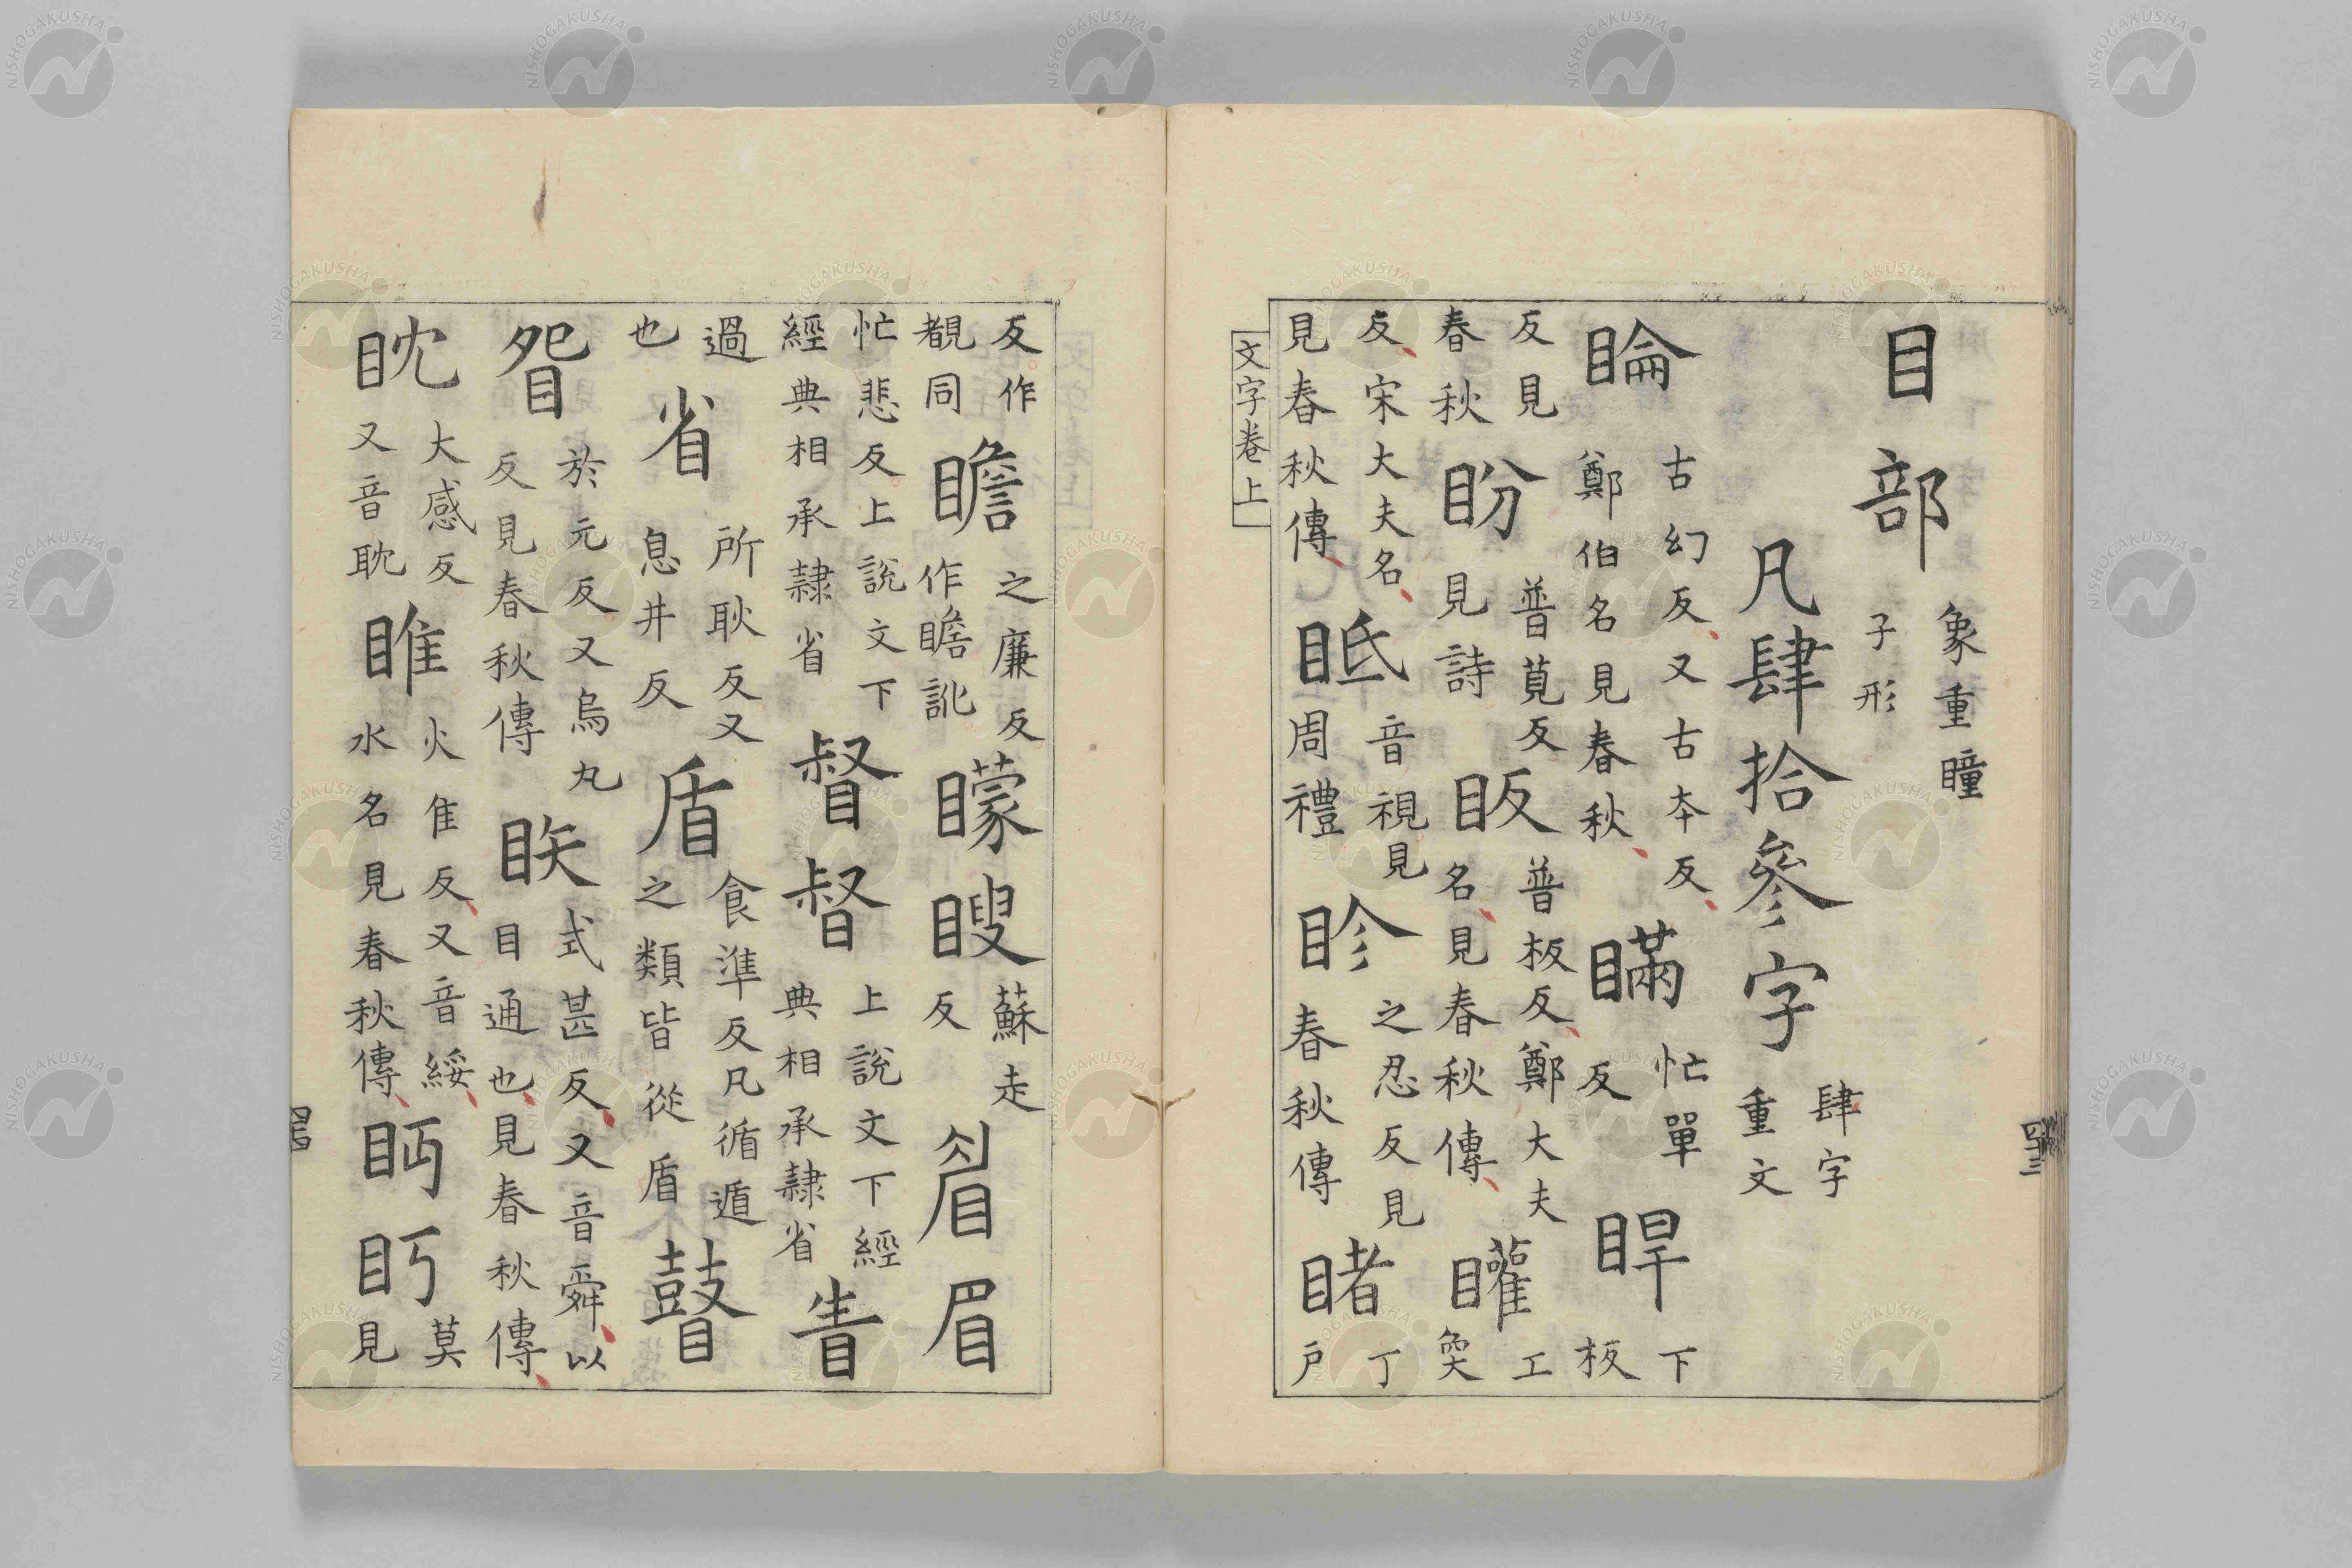 目部象重瞳子形
凡肆拾參字肆字重文
睔古幻反又古本反鄭伯名見春秋瞞忙單反睅下板
反見春秋盼普莧反見詩眅普板反鄭大夫名見春秋傳矔工奐
反宋大夫名見春秋傳眡音視見周禮眕之忍反見春秋傳睹丁戶
文字卷上
反作覩同瞻之廉反作瞻訛矇瞍蘇走反睂眉
忙悲反上說文下經典相承隷省督督上說文下經典相承隷省眚
過也省所耿反又息井反盾食準反凡循遁之類皆從盾瞽
眢於元反又烏丸反見春秋傳䀢式甚反又音舜以目通也見春秋傳
眈大感反又音耽睢火隹反又音綏水名見春秋傳眄眄莫見
NISHOGAKUSHA